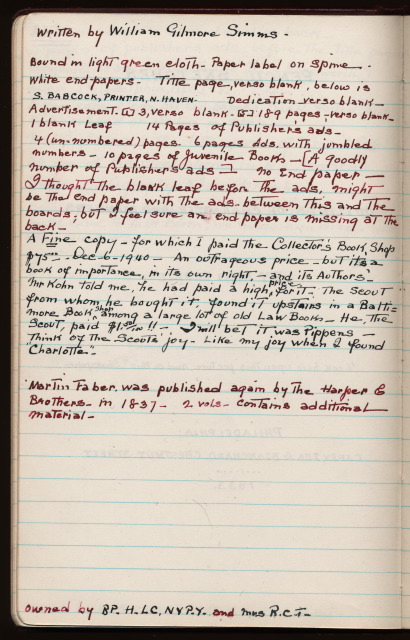 Written by William Gilmore Simms.
Bound in light green cloth. Paper label on spine.
White end-papers - Title page, verso blank, below is
S. BABCOCK, PRINTER, N. HAVEN. Dedication verso blank -
Advertisement. 3, verso blank - 189 pages - verso blank -
1 blank Leaf 14 Pages of Publisher's ads -
4 (un-numbered) pages. 6 pages ads. with jumbled
numbers - 10 pages of Juvenile Books - [A goodly
number of Publisher's ads] no End paper -
I thought the blank leaf before the ads, might
be the end paper with the ads - between this and the
boards, but I feel sure an end paper is missing at the
back -
A Fine copy - for which I paid the Collector's Book Shop
$75.00. Dec - 6 - 1940 - An outrageous price - but its a
book of importance, in its own right - and its Authors' -
Mr Kohn told me, he had paid a high price for it - The Scout
from whom he bought it, found it upstairs in a Balti-
more Book Shop among a large lot of old Law Books - He, the
Scout, paid !! - I will bet it was Pippens -
Think of the Scouts' joy - Like my joy when I found
"Charlotte" -
Martin Faber was published again by the Harper &
Brothers - in 1837 - 2 vols - contains additional
material -
owned by BP. H. LC, NYP. Y. and Mrs R.C.T -